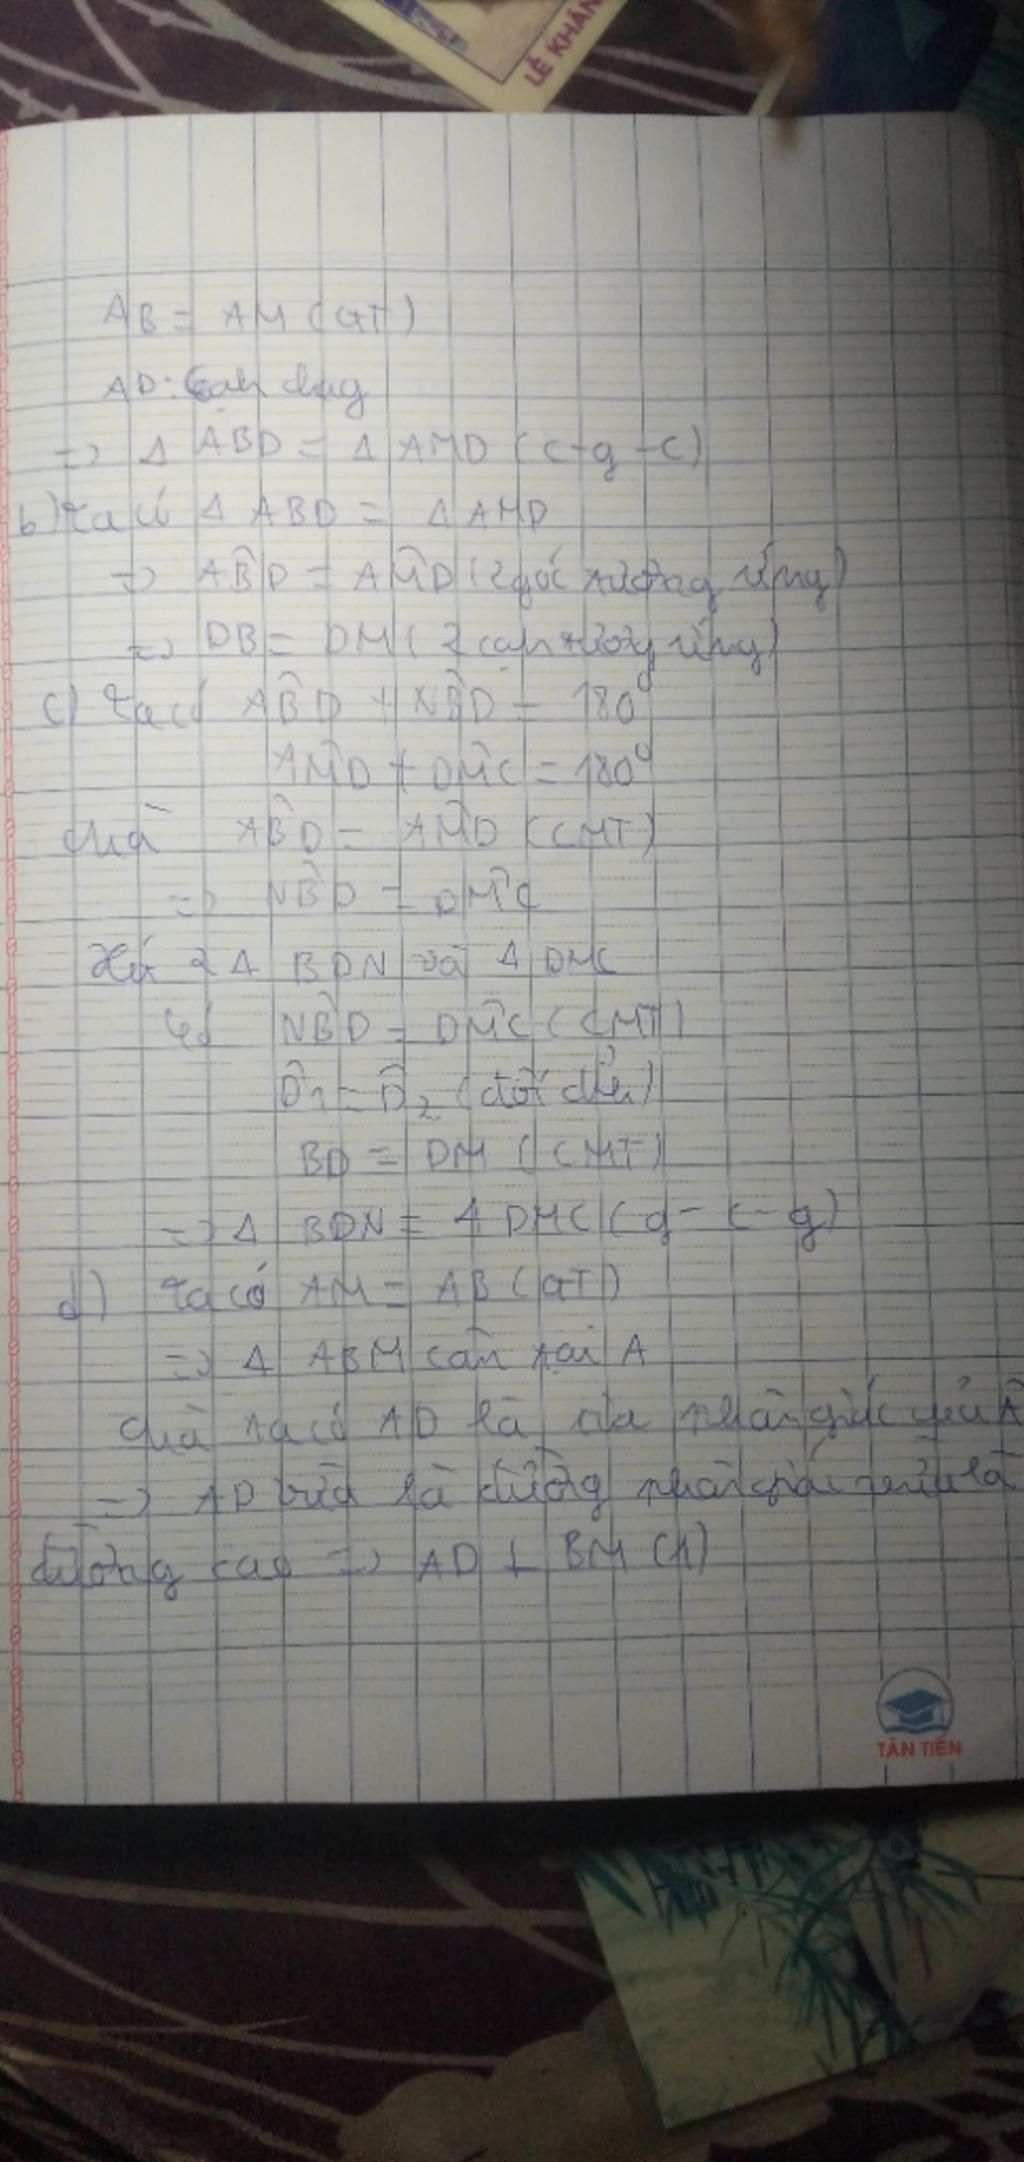 LÊ KHÁN
AB = AM (GT)
AD: Cạnh chung
=> Δ ABD = Δ AMD (c-g-c)
b) ta có Δ ABD = Δ AMD
=> AB̂D = AM̂D (2 góc tương ứng)
=> DB = DM (2 cạnh tương ứng)
c) ta có AB̂D + NB̂D = 180⁰
AM̂D + DM̂C = 180⁰
Mà AB̂D = AM̂D (CMT)
=> NB̂D = DM̂C
Xét 2 Δ BDN và Δ DMC
Có NB̂D = DM̂C (CMT)
D̂1 = D̂2 (đối đỉnh)
BD = DM (CMT)
=> Δ BDN = Δ DMC (g-c-g)
d) ta có AM = AB (GT)
=> Δ ABM cân tại A
Mà ta có AD là tia phân giác của Â
=> AD vừa là đường phân giác vừa là
đường cao => AD ⊥ BM (1)
TÂN TIẾN